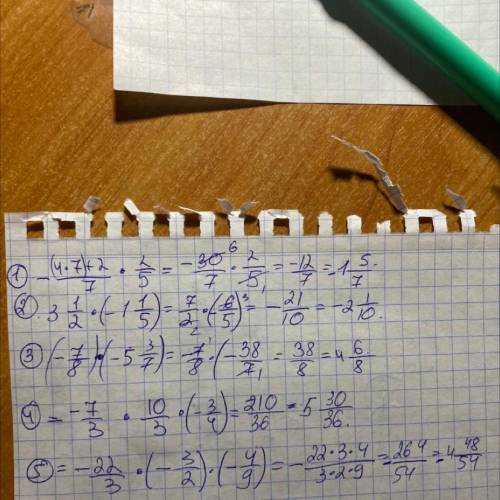 ① -(4·7)+2/7 · 2/5 = -30/7 · 2/5 = -12/7 = -1 5/7.
② 3 1/2 · (-1 1/5) = 7/2 · (6/5) = -21/10 = -2 1/10.
③ (-7/8) · (-5 3/7) = -7/8 · (-38/7) = 38/8 = 4 6/8
④ = -7/3 · 10/3 · (-3/4) = 210/36 = 5 30/36.
⑤ = -22/3 · (-3/2) · (-4/9) = -22·3·4/3·2·9 = 264/54 = 4 48/54